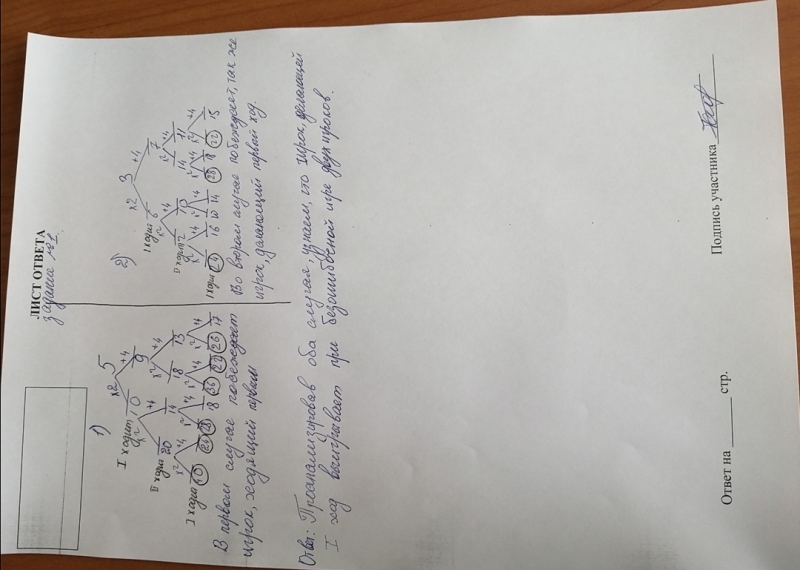 ЛИСТ ОТВЕТА
задание №1.
1)
x2 5 +4
I ходит 10 9
x2 +4 x2 +4
II ходит 20 14 18 13
x2 +4 x2 +4 x2 +4 x2 +4
I ходит 40 24 28 18 36 22 26 17
В первом случае побеждает
игрок, ходящий первым
2)
x2 3 +4
I ходит 6 7
x2 +4 x2 +4
II ходит 12 10 14 11
x2 +4 x2 +4 x2 +4 x2 +4
I ходит 24 16 20 14 28 18 22 15
Во втором случае побеждает, так же
игрок, делающий первый ход.
Ответ: Проанализировав оба случая, узнаем, что игрок, делающий
I ход выигрывает при безошибочной игре двух игроков.
Ответ на ______ стр.
Подпись участника